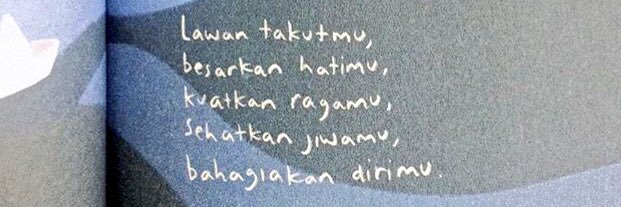 Lawan takutmu,
besarkan hatimu,
kuatkan ragamu,
sehatkan jiwamu,
bahagiakan dirimu.